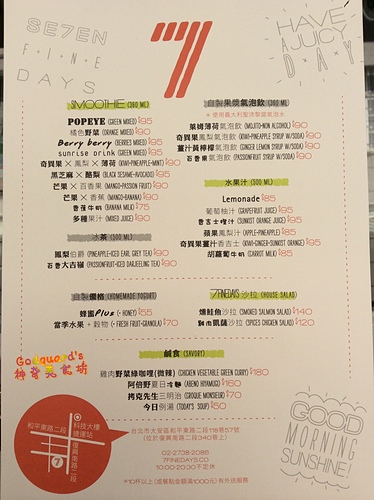 SE7EN
F·I·N·E
DAYS
7
HAVE
A JUCY
DAY
SMOOTHIE (360 ML)
POPEYE (GREEN MIXED) $95
橘色野菜 (ORANGE MIXED) $90
Berry berry (BERRIES MIXED) $95
sunrise drink (GREEN MIXED) $95
奇異果 × 鳳梨 × 薄荷 (KIWI-PINEAPPLE-MINT) $90
黑芝麻 × 酪梨 (BLACK SESAME-AVOCADO) $95
芒果 × 百香果 (MANGO-PASSION FRUIT) $90
芒果 × 香蕉 (MANGO-BANANA) $90
香蕉牛奶 (BANANA MILK) $75
多種果汁 (MIXED JUICE) $90
冰茶 (500 ML)
鳳梨伯爵 (PINEAPPLE-ICED EARL GREY TEA) $90
百香大吉嶺 (PASSIONFRUIT-ICED DARJEELING TEA) $90
自製優格 (HOMEMADE YOGURT)
蜂蜜Plus (+ HONEY) $55
當季水果 + 穀物 (+ FRESH FRUIT+GRANOLA) $70
自製果漿氣泡飲 (360 ML)
* 使用義大利聖沛黎諾氣泡水
萊姆薄荷氣泡飲 (MOJITO-NON ALCOHOL) $90
奇異果鳳梨氣泡飲 (KIWI-PINEAPPLE SYRUP W/SODA) $90
薑汁黃檸檬氣泡飲 (GINGER LEMON SYRUP W/SODA) $90
百香果氣泡飲 (PASSIONFRUIT SYRUP W/SODA) $90
水果汁 (500 ML)
Lemonade $85
葡萄柚汁 (GRAPEFRUIT JUICE) $95
香吉士橙汁 (SUNKIST ORANGE JUICE) $95
蘋果鳳梨汁 (APPLE-PINEAPPLE) $85
奇異果薑汁香吉士 (KIWI-GINGER-SUNKIST ORANGE) $95
胡蘿蔔牛奶 (CARROT MILK) $85
7FINEDAYS 沙拉 (HOUSE SALAD)
燻鮭魚沙拉 (SMOKED SALMON SALAD) $140
雞肉凱薩沙拉 (SPICES CHICKEN SALAD) $120
鹹食 (SAVORY)
雞肉野菜綠咖哩(微辣) (CHICKEN VEGETABLE GREEN CURRY) $180
阿伯野夏日冷麵 (ABENO HIYAMUGI) $160
拷克先生三明治 (CROQUE MONSIEUR) $170
今日例湯 (TODAY'S SOUP) $50
Godguard's
神奇美食坊
和平東路二段
科技大樓
捷運站
復興南路二段
7
台北市大安區和平東路二段118巷57號
(位於復興南路二段340巷上)
02-2736-2088
7FINEDAYS.CC
10:00-20:30不定休
*10杯以上 (或餐點金額滿1000元) 有外送服務
GOOD
MORNING
SUNSHINE!